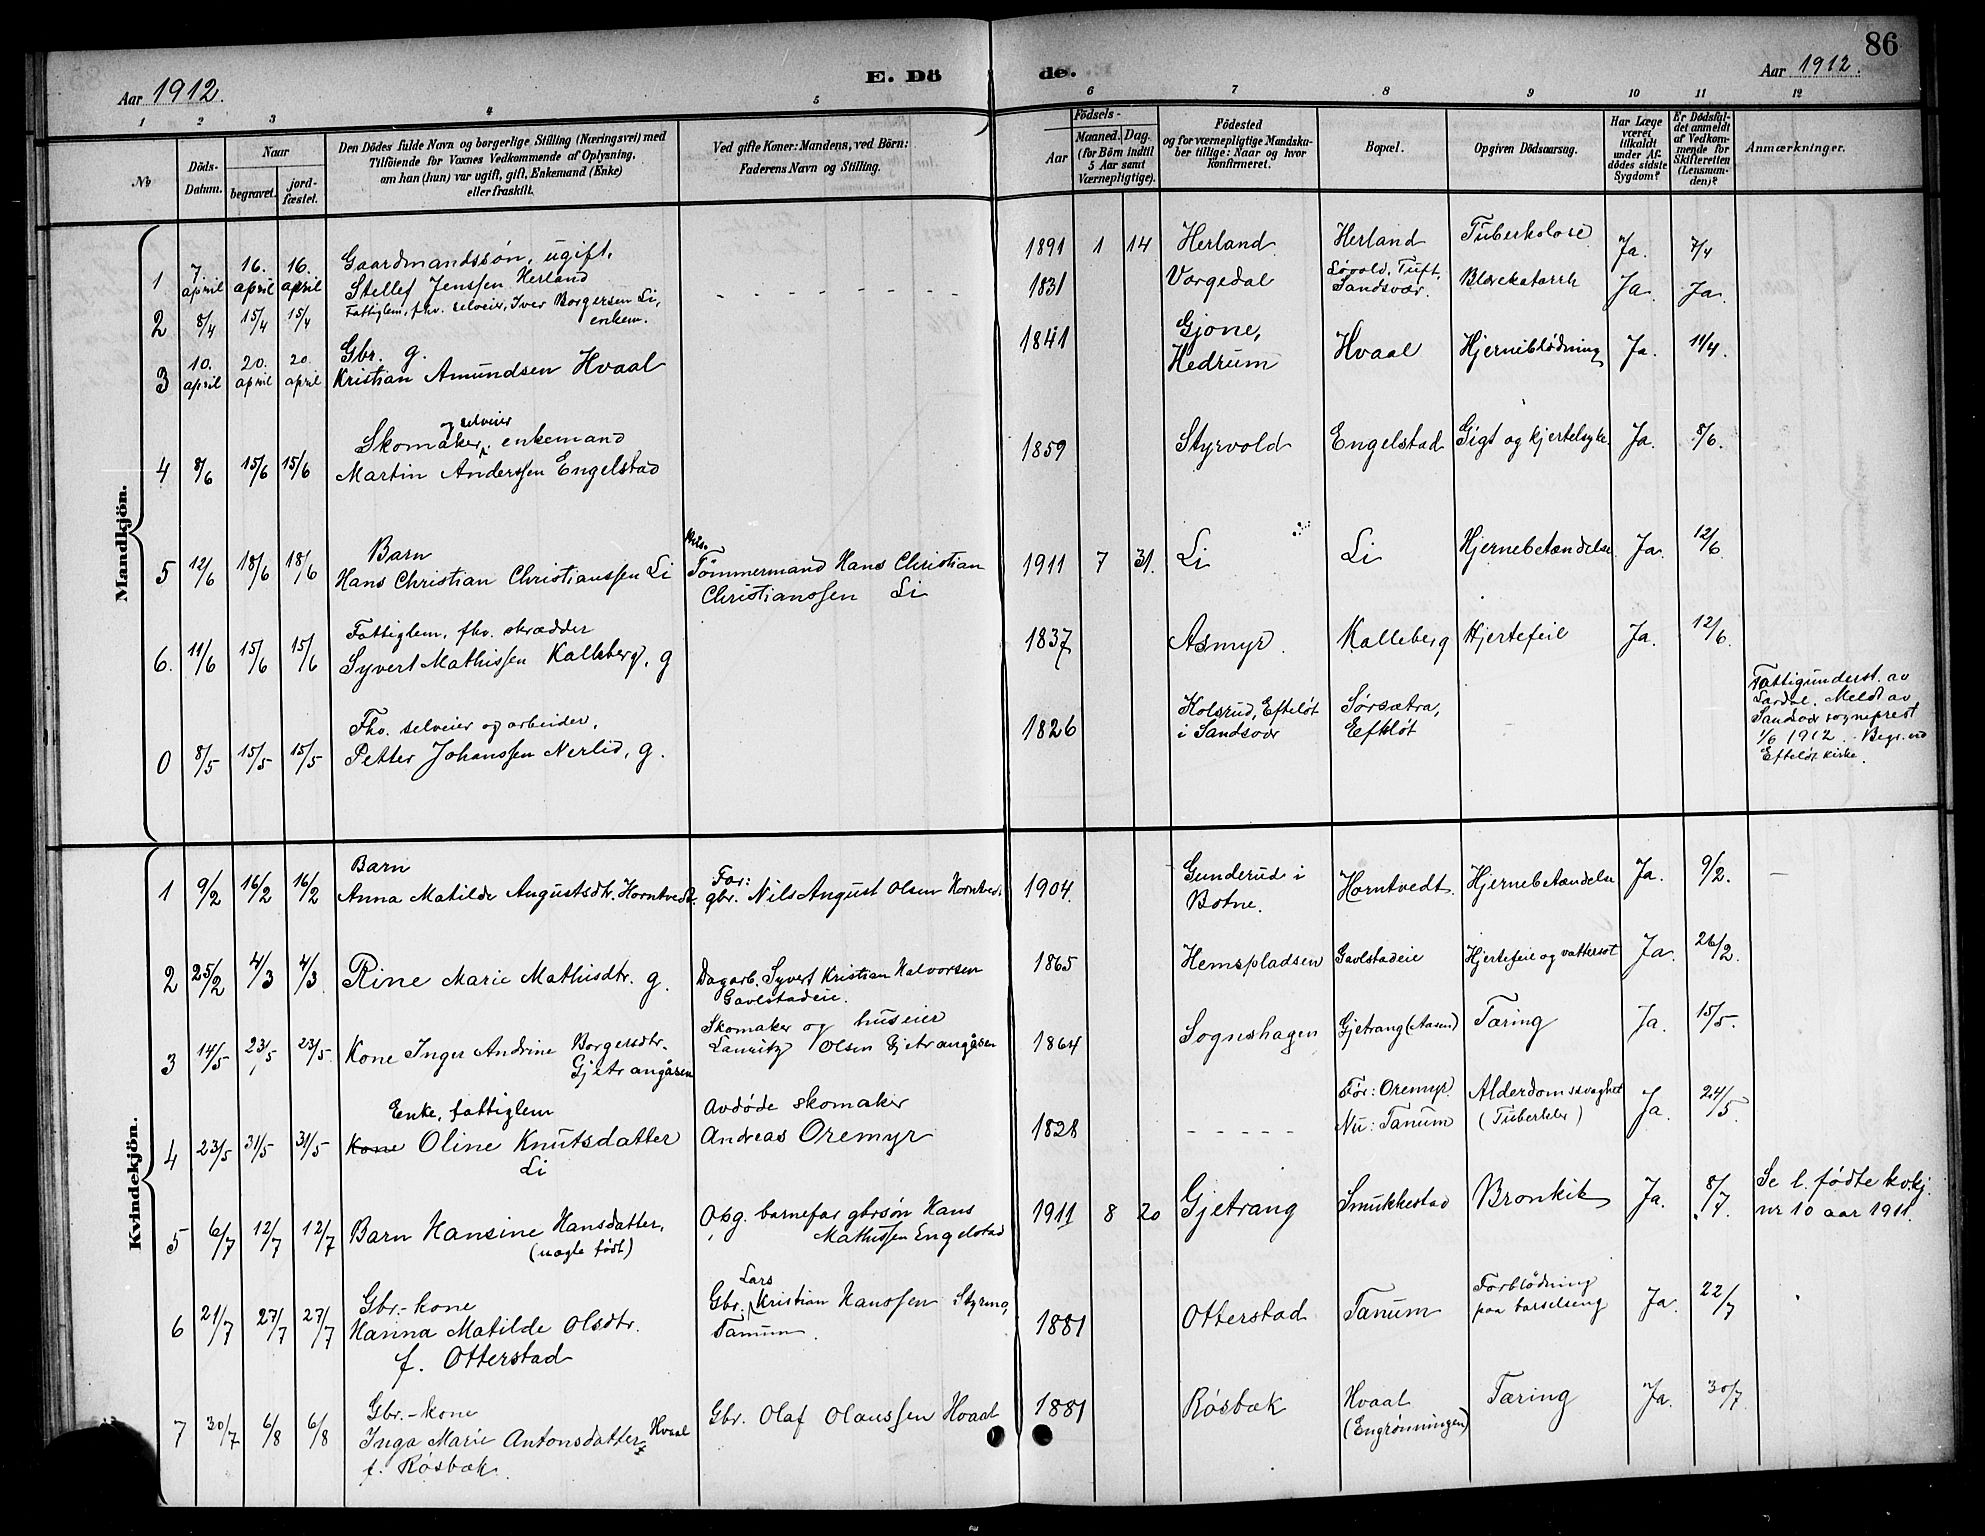 86
E. Dö de.
Aar 1912.
Aar 1912.
1 2 3 4 5 6 7 8 9 10 11 12
No
Döds-Datum.
Naar
begravet.
jordfæstet.
Den Dödes fulde Navn og borgerlige Stilling (Næringsvei) med
Tilföiende for Voxnes Vedkommende af Oplysning,
om han (hun) var ugift, gift, Enkemand (Enke)
eller fraskilt.
Ved gifte Koner: Mandens, ved Börn:
Faderens Navn og Stilling.
Födsels-
Aar
Maaned. Dag.
(for Börn indtil
5 Aar samt
Værnepligtige).
Födested
og for værnepligtige Mandska-
ber tillige: Naar og hvor
konfirmeret.
Bopæl.
Opgiven Dödsaarsag.
Har Læge
været
tilkaldt
under Af-
dödes sidste
Sygdom?
Er Dödsfal-
det anmeldt
af Vedkom-
mende for
Skifteretten
(Lensman-
den)?
Anmærkninger.
Mandkjön.
1 7 april 16. april 16. april Gaardmandssön, ugift, Stellef Jenssen Herland 1891 1 14 Herland Herland Tuberkolose Ja. 7/4
2 8/4 15/4 15/4 Fattiglem, fhv. selveier, Iver Borgersen Li, enkem. - - - - - - - 1831 Vorgedal Løvold, Tuft, Sandsvær. Blærekatarrh Ja. Ja.
3 10. april 20. april 20. april Gbr. g. Kristian Amundsen Hvaal 1841 Gjone, Hedrum Hvaal Hjerneblødning Ja. 11/4.
4 8/6 15/6 15/6 Skomaker og selveier, enkemand Martin Anderssen Engelstad 1859 Styrvold Engelstad Gigt og kjertelsyke Ja. 8/6.
5 12/6 18/6 18/6 Barn Hans Christian Christianssen Li Tömmermand Hans Christian Christianssen Li 1911 7 31. Li Li Hjernebetændelse Ja. 12/6.
6. 11/6 15/6 15/6 Fattiglem, fhv. skrædder Syvert Mathissen Kalleberg, g 1837 Asmyr. Kalleberg Hjertefeil Ja. 12/6.
0 8/5 15/5 15/5 Fhv. selveier og arbeider, Petter Johanssen Nerlid, g. 1826 Kolsrud, Efteløt i Sandsvær Sørsætra, Efteløt Fattigunderst. av Lardal. Meldt av Sandsvær sogneprest 1/6 1912. Begr. ved Efteløt kirke.
Kvindekjön.
1 9/2 16/2 16/2 Barn Anna Matilde Augustsdtr. Horntvedt. Far: gbr. Nils August Olsen Horntvedt 1904. Gunderud i Botne. Horntvedt. Hjernebetændelse Ja. 9/2. —
2 25/2 4/3 4/3 Rine Marie Mathisdtr. g. Dagarb. Syvert Kristian Halvorsen Gavlstadeie. 1865 Hemspladsen Gavlstadeie Hjertefeil og vattersot Ja. 26/2.
3 14/5 23/5 23/5 Kone Inger Andrine Borgersdtr. Gjetrangåsen Skomaker og huseier Lauritz Olsen Gjetrangåsen 1864 Sognshagen Gjetrang (Aasen) Tæring Ja. 15/5.
4 23/5 31/5 31/5 Enke, fattiglem Kone Oline Knutsdatter Li Avdøde skomaker Andreas Oremyr 1828 - - - - - Før: Oremyr. Nu: Tanum Alderdomssvaghet (Tuberkler) Ja. 24/5
5 6/7 12/7 12/7 Barn Hansine Hansdatter, (uægte født) Opg. barnefar gbrsøn Hans Mathissen Engelstad 1911 8 20 Gjetrang Smukkestad Bronkit Ja. 8/7. Se l. fødte kvkj. nr 10 aar 1911.
6 21/7 27/7 27/7 Gbr.-kone Hanna Matilde Olsdtr. f. Otterstad Gbr. Lars Kristian Hanssen Styrmo, Tanum. 1881 Otterstad Tanum Forblødning paa barselseng Ja. 22/7
7 30/7 6/8 6/8 Gbr.-kone Inga Marie Antonsdatter Hvaal f. Røsbæk. Gbr. Olaf Olaussen Hvaal 1881 Røsbæk Hvaal (Engrønningen) Tæring Ja. 30/7.